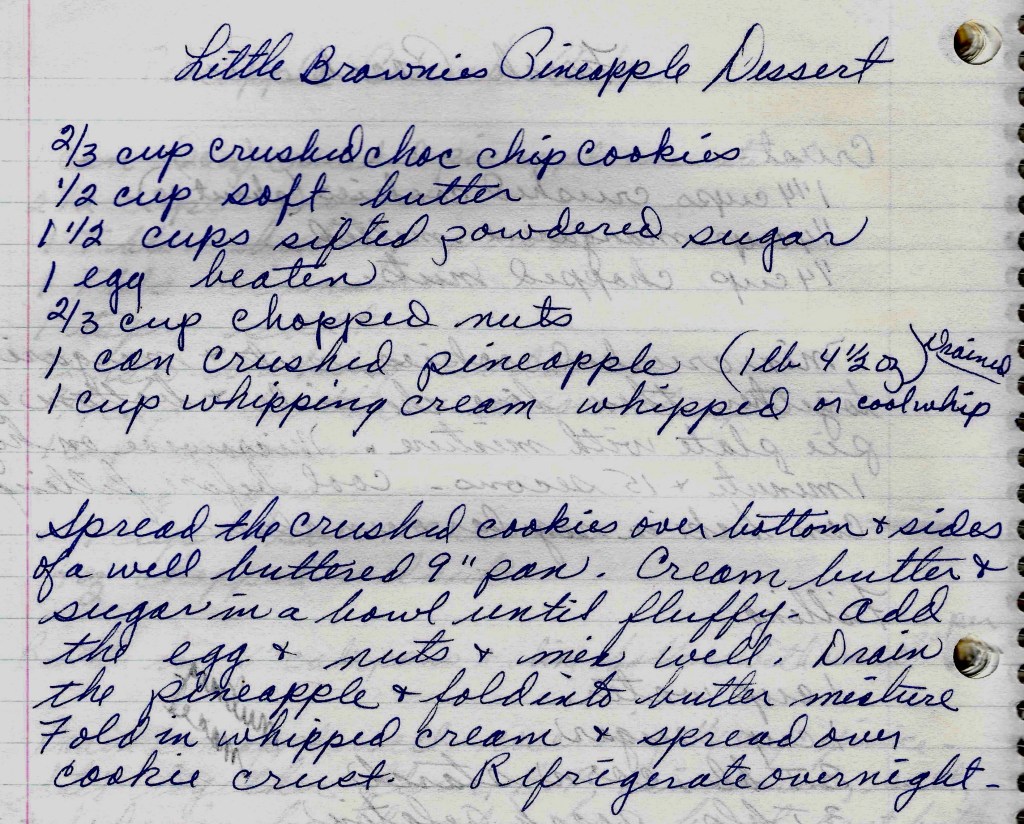 Little Brownies Pineapple Dessert
2/3 cup crushed choc chip cookies
1/2 cup soft butter
1 1/2 cups sifted powdered sugar
1 egg beaten
2/3 cup chopped nuts
1 can crushed pineapple (1 lb. 4 1/2 oz) Drained
1 cup whipping cream whipped or coolwhip
Spread the crushed cookies over bottom & sides
of a well buttered 9" pan. Cream butter &
sugar in a bowl until fluffy - add
the egg & nuts & mix well. Drain
the pineapple & fold into butter mixture
Fold in whipped cream & spread over
cookie crust. Refrigerate overnight -